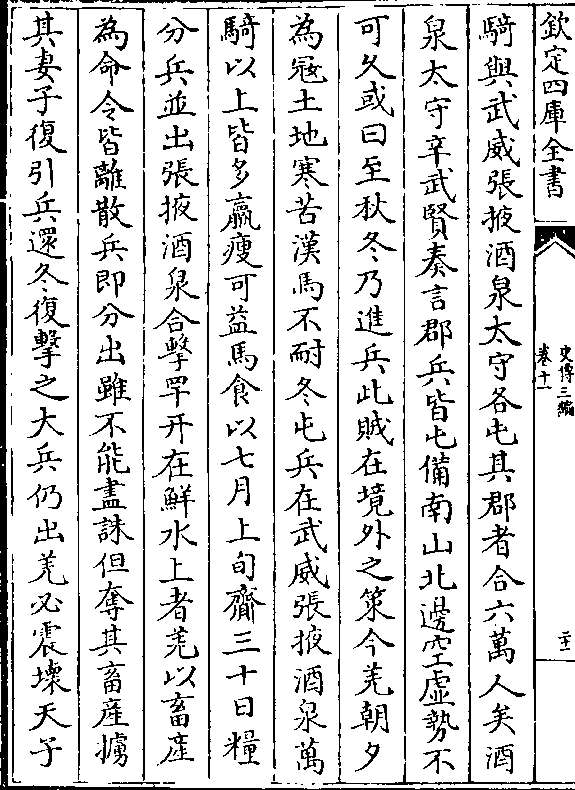 欽定四庫全書
史傳三編
卷十一
二
騎與武威張掖酒泉太守各屯其郡者合六萬人矣酒
泉太守辛武賢奏言郡兵皆屯備南山北邊空虛勢不
可久或曰至秋冬乃進兵此賊在境外之策今羌朝夕
為寇土地寒苦漢馬不耐冬屯兵在武威張掖酒泉萬
騎以上皆多羸瘦可益馬食以七月上旬齎三十日糧
分兵並出張掖酒泉合擊罕幵在鮮水上者羌以畜產
為命令皆離散兵即分出雖不能盡誅但奪其畜產擄
其妻子復引兵還冬復擊之大兵仍出羌必震壞天子